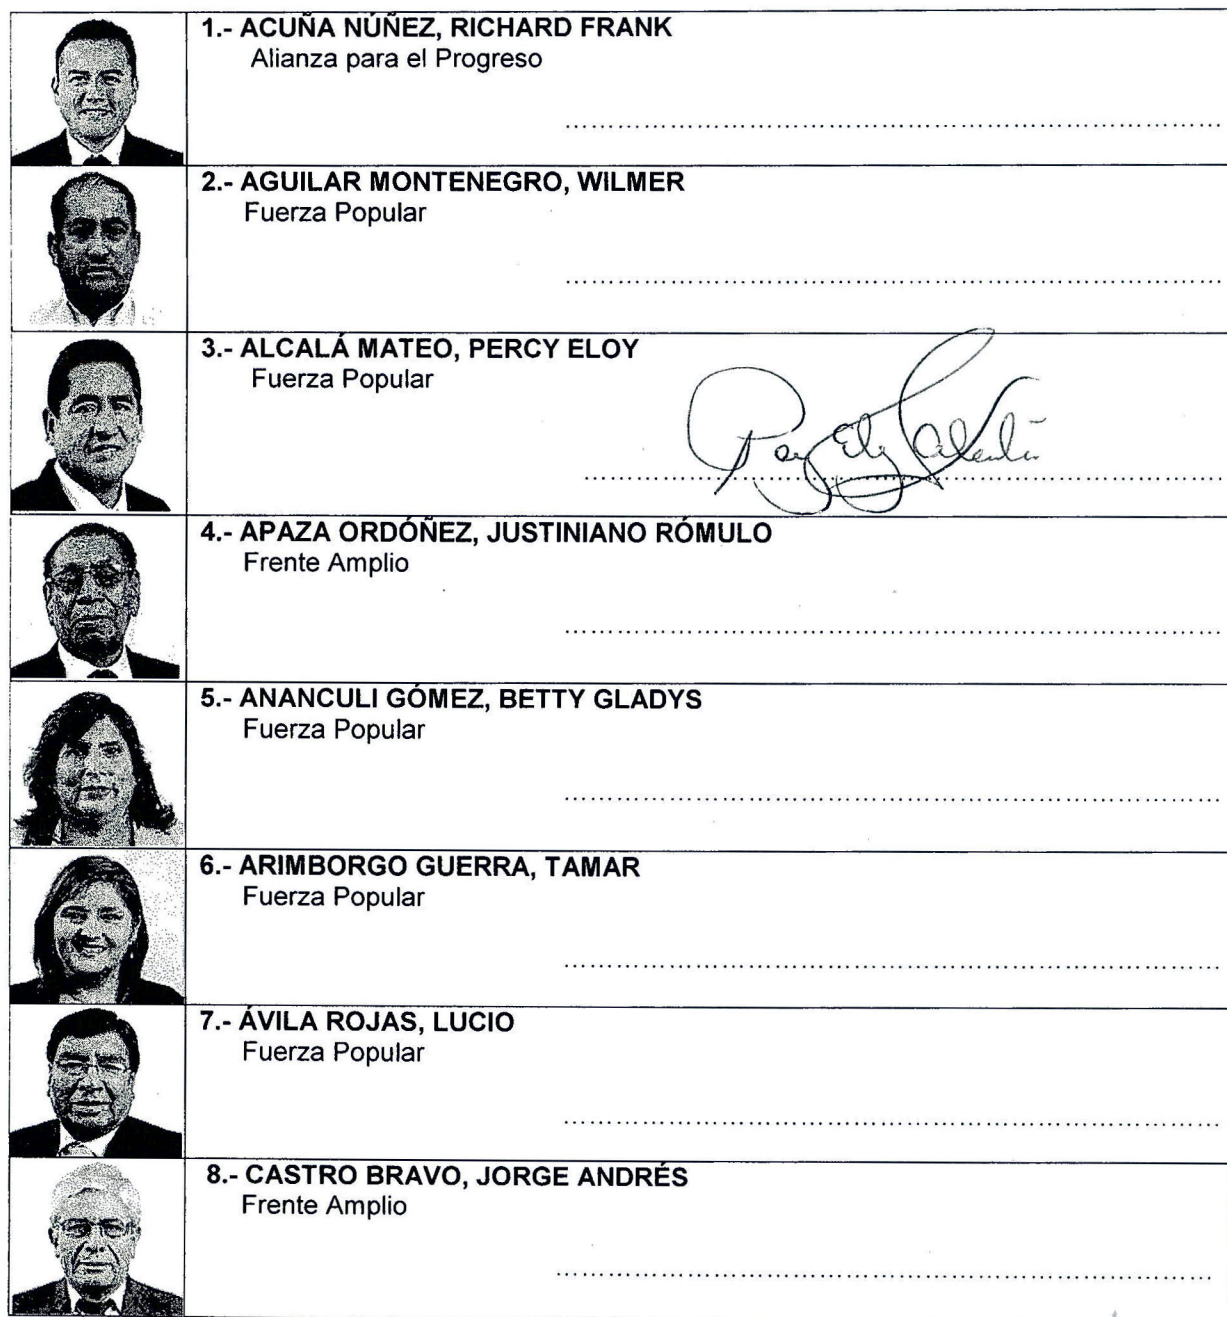 1.- ACUÑA NÚÑEZ, RICHARD FRANK
Alianza para el Progreso
2.- AGUILAR MONTENEGRO, WILMER
Fuerza Popular
3.- ALCALÁ MATEO, PERCY ELOY
Fuerza Popular
4.- APAZA ORDÓÑEZ, JUSTINIANO RÓMULO
Frente Amplio
5.- ANANCULI GÓMEZ, BETTY GLADYS
Fuerza Popular
6.- ARIMBORGO GUERRA, TAMAR
Fuerza Popular
7.- ÁVILA ROJAS, LUCIO
Fuerza Popular
8.- CASTRO BRAVO, JORGE ANDRÉS
Frente Amplio